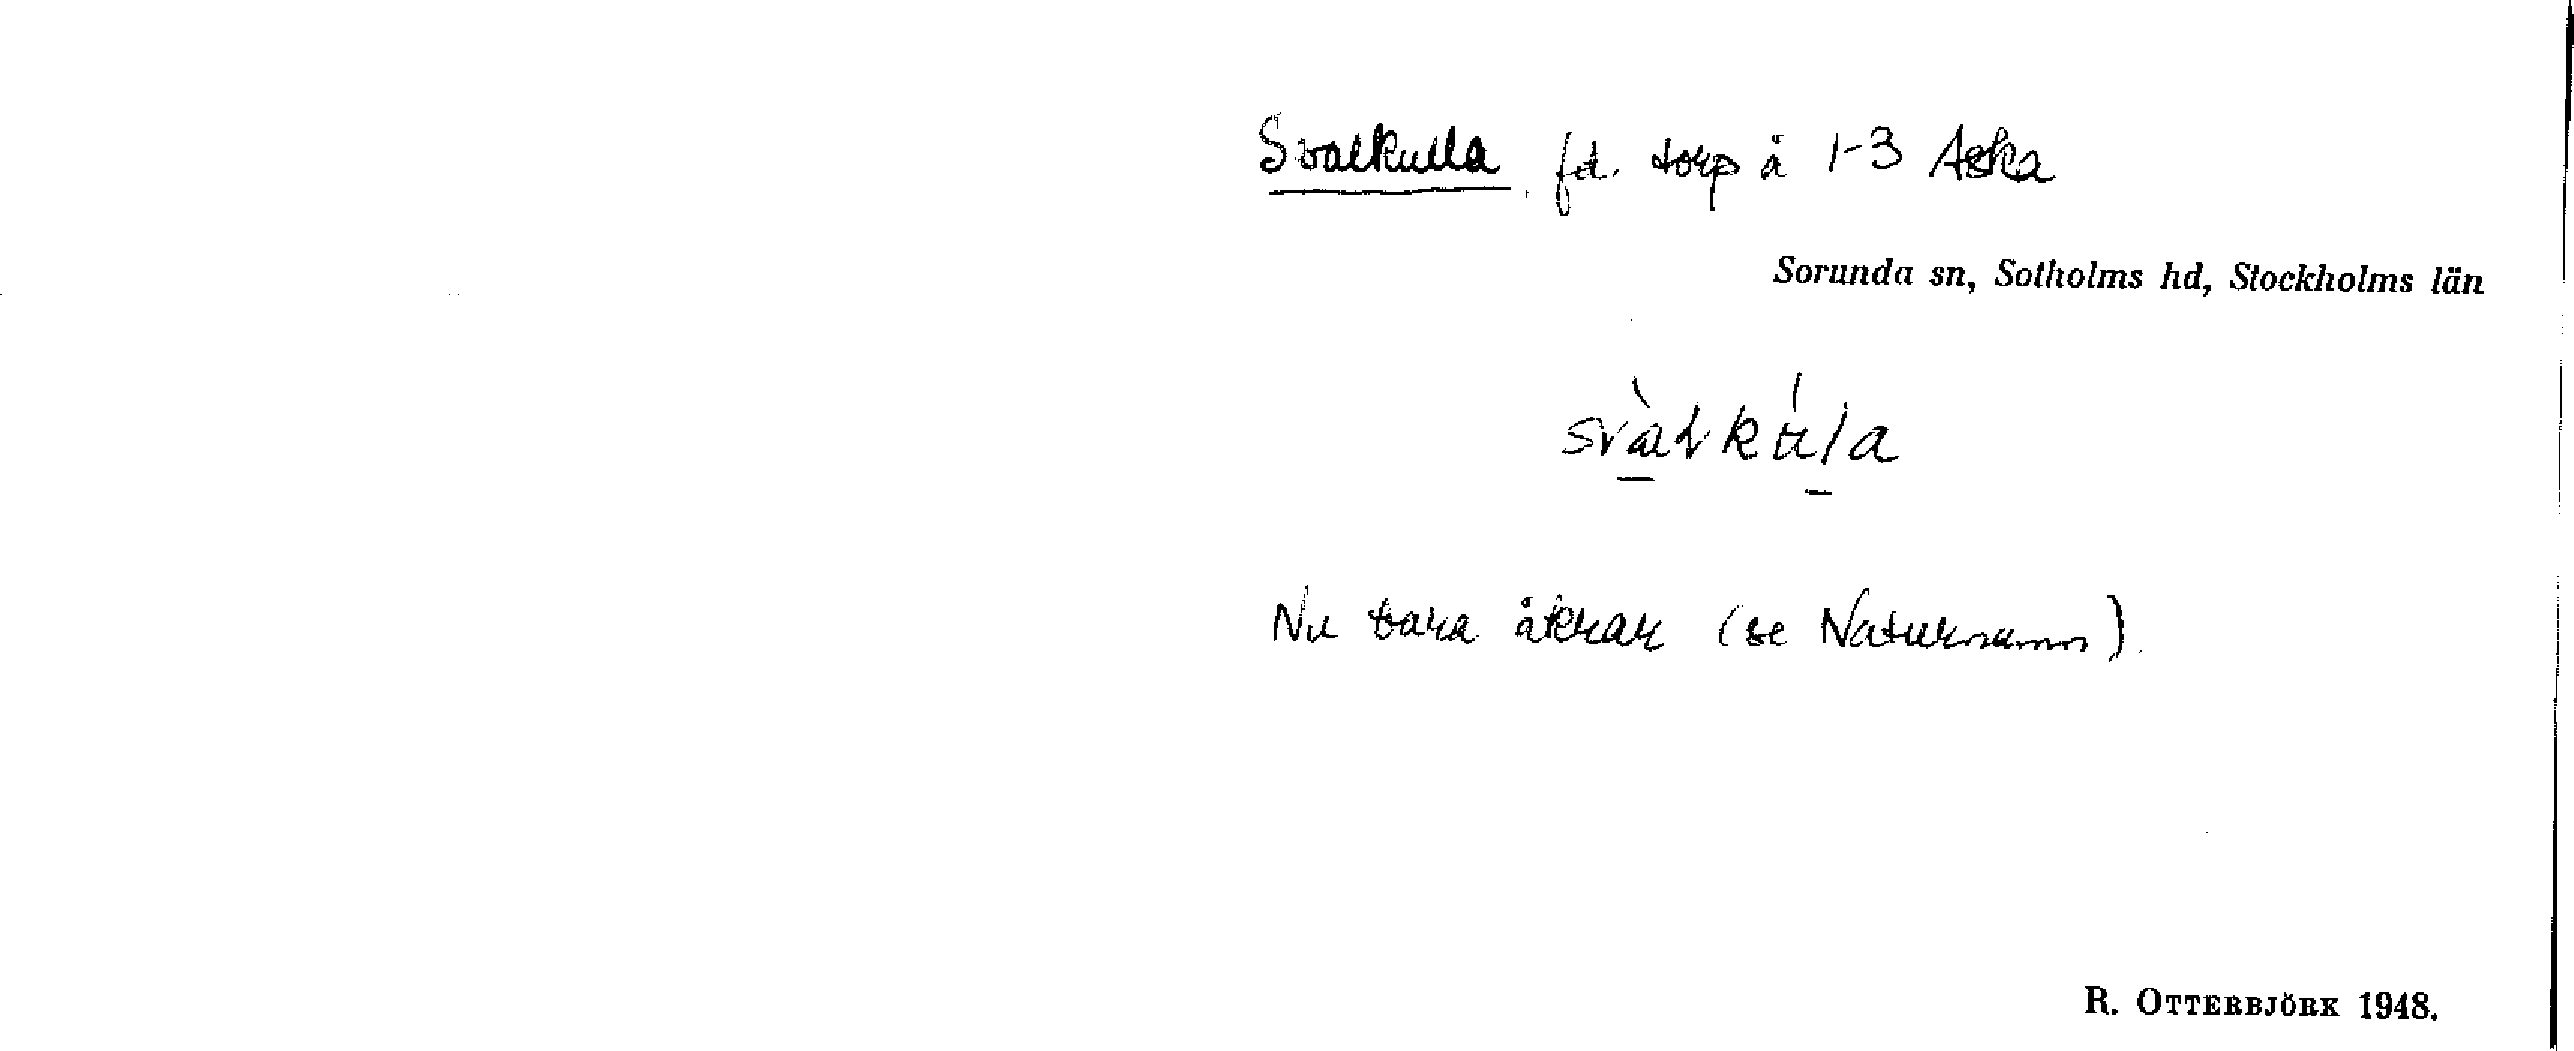 Svalkulla, fd. torp å 1-3 Aska
Sorunda sn, Sotholms hd, Stockholms län
svàlkúla
Nu bara åkrar (se Naturnamn).
R. OTTERBJÖRK 1948.